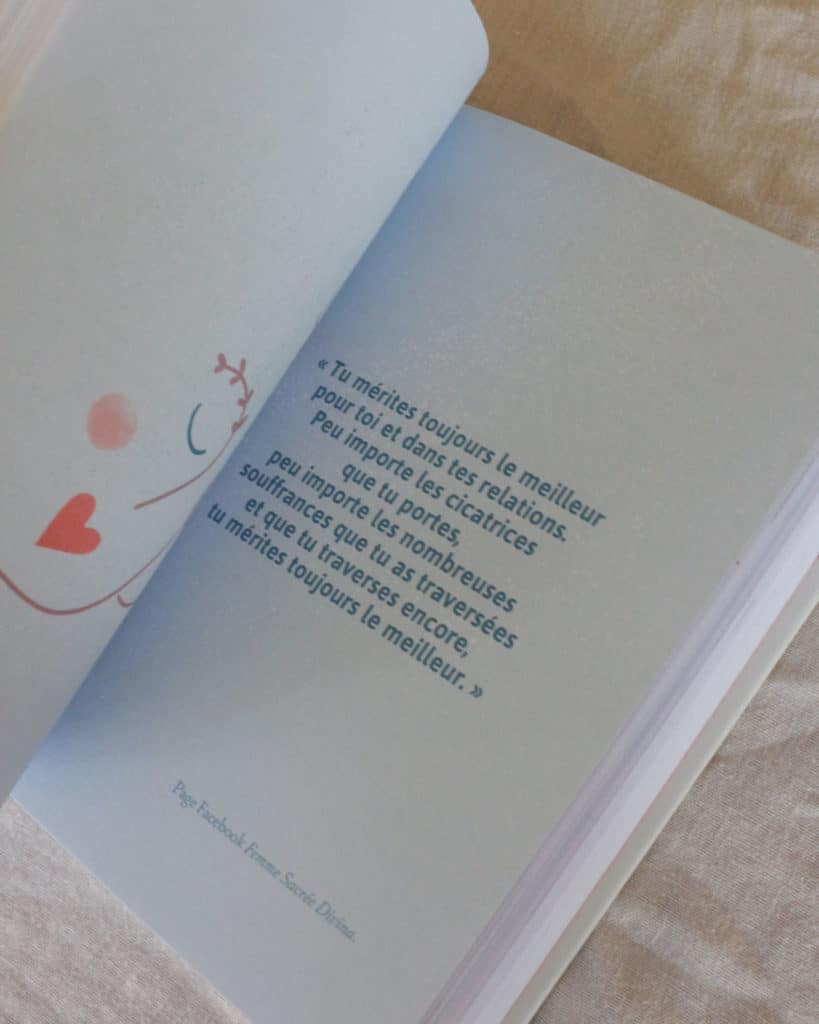 « Tu mérites toujours le meilleur
pour toi et dans tes relations.
Peu importe les cicatrices
que tu portes,
peu importe les nombreuses
souffrances que tu as traversées
et que tu traverses encore,
tu mérites toujours le meilleur. »
Page Facebook Femme Sacrée Divina.